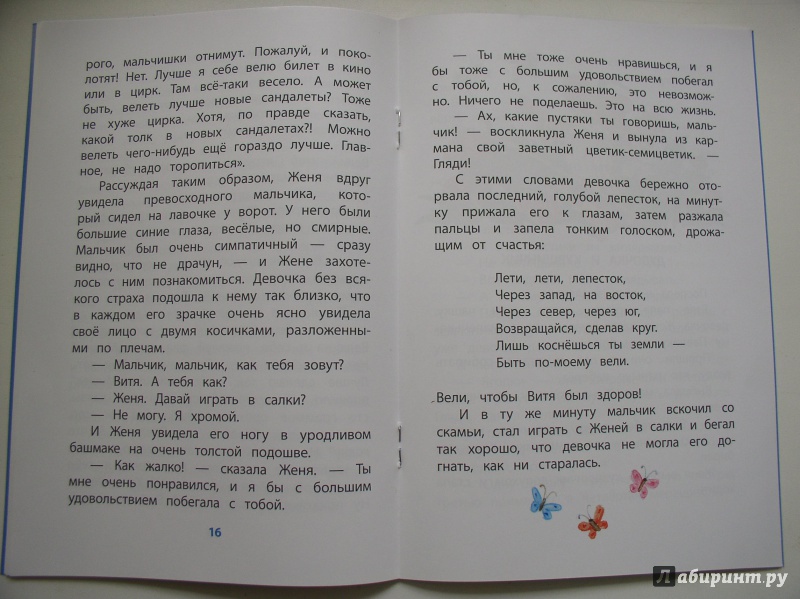 рого, мальчишки отнимут. Пожалуй, и поко-
лотят! Нет. Лучше я себе велю билет в кино
или в цирк. Там всё-таки весело. А может
быть, велеть лучше новые сандалеты? Тоже
не хуже цирка. Хотя, по правде сказать,
какой толк в новых сандалетах?! Можно
велеть чего-нибудь ещё гораздо лучше. Глав-
ное, не надо торопиться».
Рассуждая таким образом, Женя вдруг
увидела превосходного мальчика, кото-
рый сидел на лавочке у ворот. У него были
большие синие глаза, весёлые, но смирные.
Мальчик был очень симпатичный — сразу
видно, что не драчун, — и Жене захоте-
лось с ним познакомиться. Девочка без вся-
кого страха подошла к нему так близко, что
в каждом его зрачке очень ясно увидела
своё лицо с двумя косичками, разложенны-
ми по плечам.
— Мальчик, мальчик, как тебя зовут?
— Витя. А тебя как?
— Женя. Давай играть в салки?
— Не могу. Я хромой.
И Женя увидела его ногу в уродливом
башмаке на очень толстой подошве.
— Как жалко! — сказала Женя. — Ты
мне очень понравился, и я бы с большим
удовольствием побегала с тобой.
16
— Ты мне тоже очень нравишься, и я
бы тоже с большим удовольствием побегал
с тобой, но, к сожалению, это невозмож-
но. Ничего не поделаешь. Это на всю жизнь.
— Ах, какие пустяки ты говоришь, маль-
чик! — воскликнула Женя и вынула из кар-
мана свой заветный цветик-семицветик. —
Гляди!
С этими словами девочка бережно ото-
рвала последний, голубой лепесток, на минут-
ку прижала его к глазам, затем разжала
пальцы и запела тонким голоском, дрожа-
щим от счастья:
Лети, лети, лепесток,
Через запад, на восток,
Через север, через юг,
Возвращайся, сделав круг.
Лишь коснёшься ты земли —
Быть по-моему вели.
Вели, чтобы Витя был здоров!
И в ту же минуту мальчик вскочил со
скамьи, стал играть с Женей в салки и бегал
так хорошо, что девочка не могла его до-
гнать, как ни старалась.
Лабиринт.ру